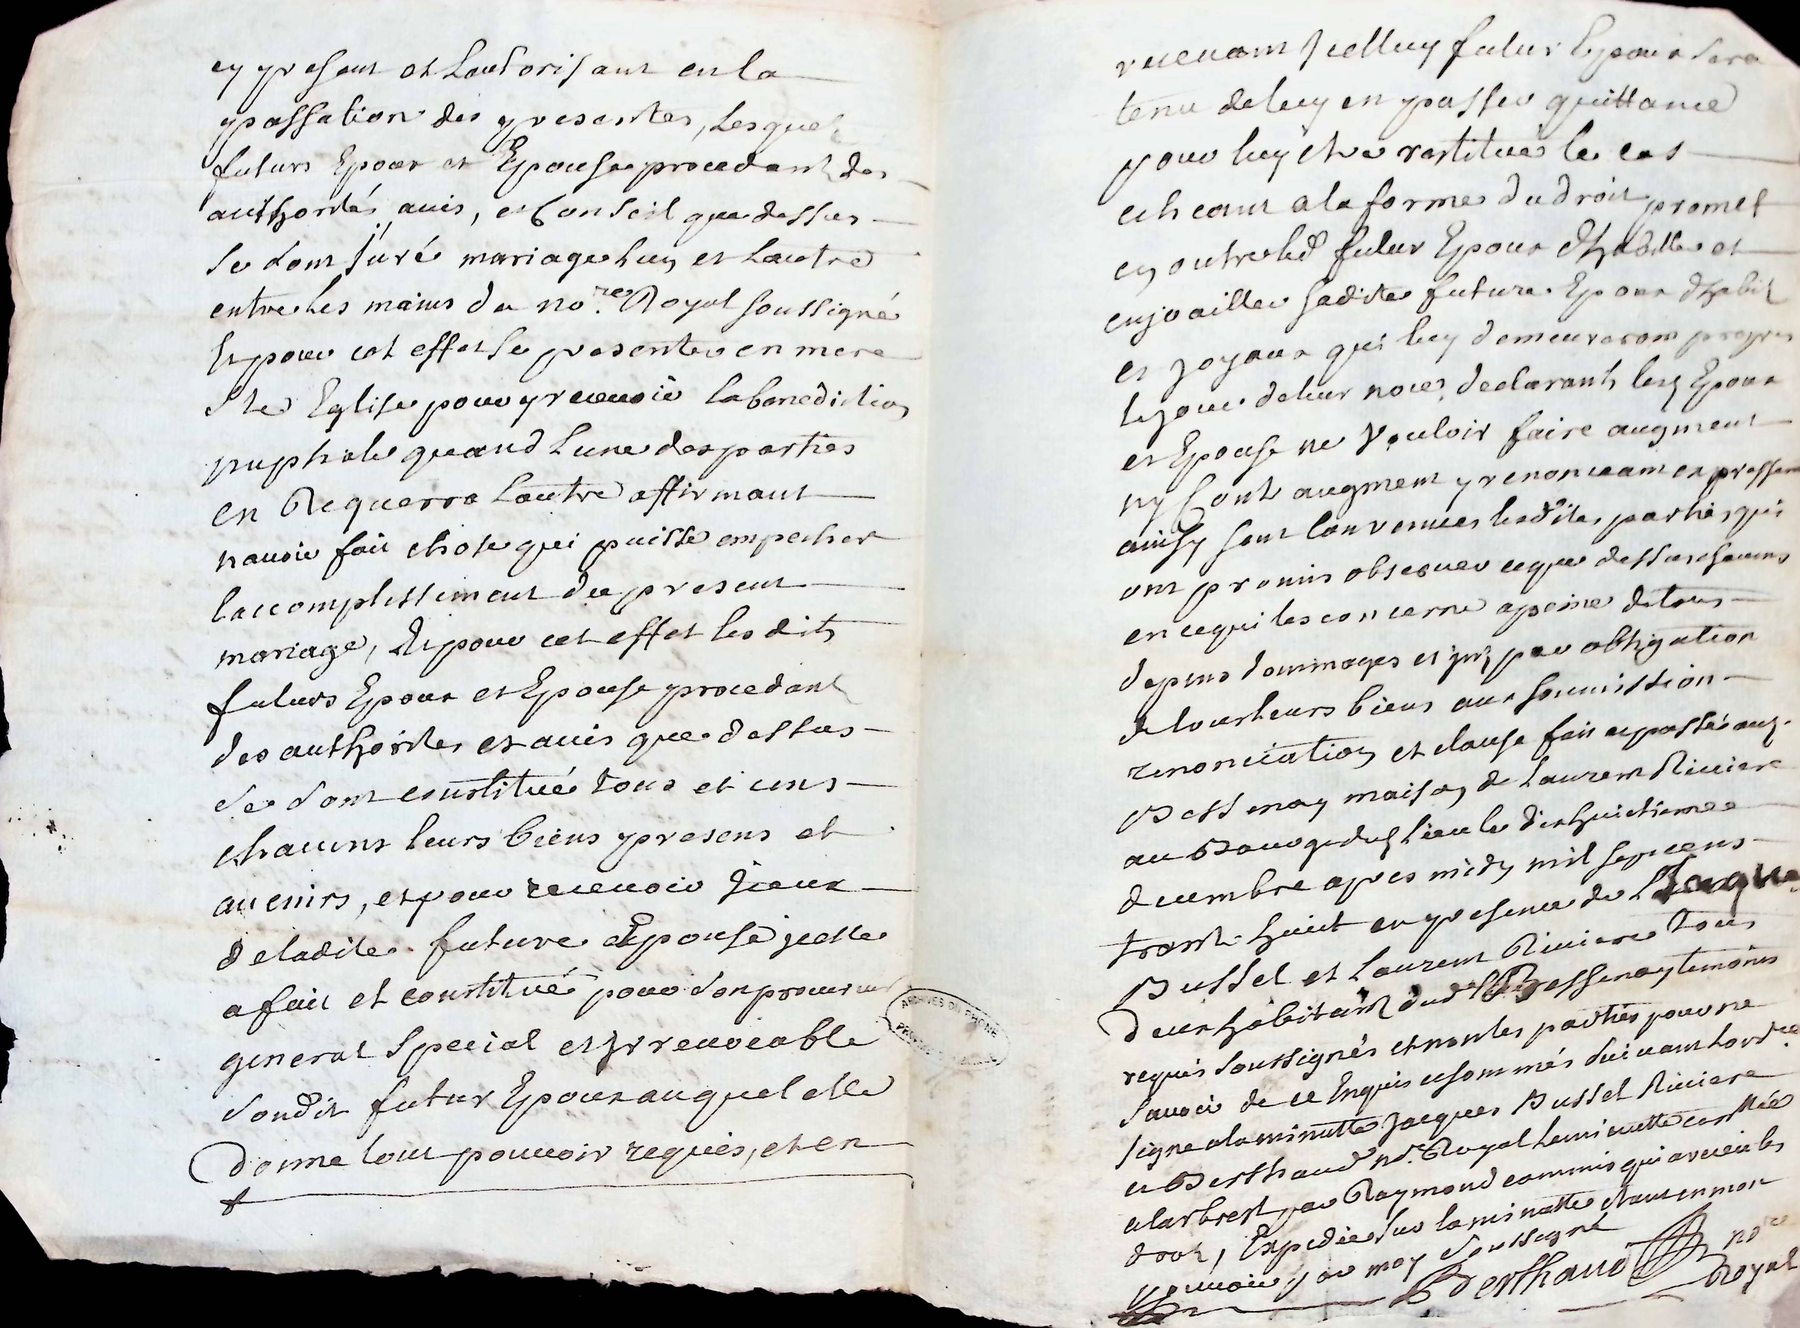 cy present et Lautorisant en la
passation des presentes, Lesquels
futurs Epoux et Epouse procedant des
authorités avis, et Conseil que dessus
se sont juré mariage Lun et Lautre
entre les mains du no.re Royal soussigné
Et pour cet effet se presenter en mere
Ste Eglise pour y recevoir la benediction
nuptiale quand Lune des parties
en Requerra Lautre affirmant
navoir fait chose qui puisse empecher
laccomplissement du present
mariage, Et pour cet effet lesdits
futurs Epoux et Epouse procedant
des authorites et avis que dessus
se sont constitué tous et uns
chacuns leurs biens presens et
avenirs, et pour recevoir Iceux
de ladite future Epouse icelle
a fait et constitué pour son procureur
general special et Irrevocable
sondit futur Epoux auquel elle
donne tout pouvoir requis, et en
recevant Icelluy futur Epoux sera
tenu deluy en passer quittance
pour luy etre restitué le cas
echeant a la forme du droit promet
en outre led futur Epoux dhabiller et
enjoailler sadite future Epouse dhabits
et joyaux qui luy demeureront propres
le jour de leur noces, declarants lesd Epoux
et Epouse ne Vouloir faire augment
ny Cont augment y renonceant expressem
ainsy sont Convenues lesdites parties qui
ont promis observer ce que dessus chacuns
en ce qui les concerne a peine de tous
depens dommages et Int par obligation
de tous leurs biens aux soumission
renonciation et clause fait et passé aud
Bessenay maison de Laurent Riviere
au Bourg dud lieu le dix huitieme
decembre apres midy mil sept cens
trente huit en presence de Jacques
Bussel et Laurent Riviere tous
deux habitants dud Bessenay temoins
requis soussignés et non les parties pour ne
savoir de ce Enquis et sommés suivant lord.ce
signé a la minutte Jacques Bussel Riviere
et Berthaud no.re Royal La minutte contrôlée
a larbresle par Raymond commis qui a receu les
droits, Expedié sur la minutte etant en mon
pouvoir par moy soussigné
Berthaud no.re
Royal
ARCHIVES DU RHONE